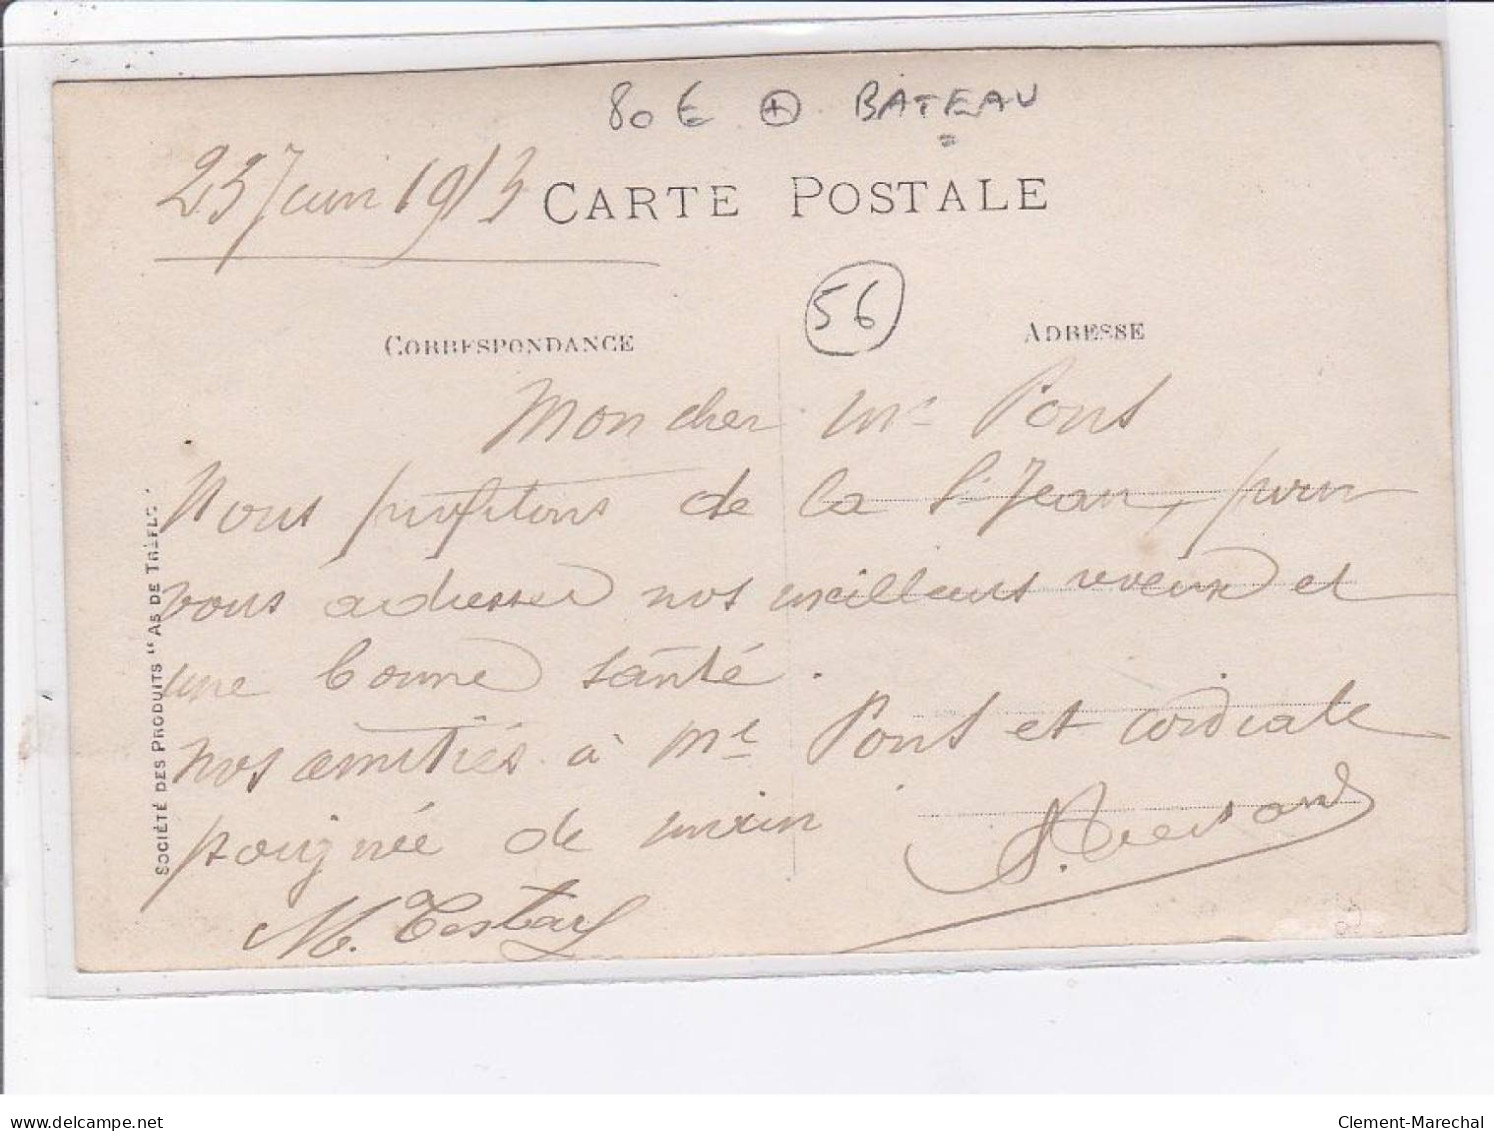 80 € + BATEAU
23 Juin 1913
CARTE POSTALE
56
CORRESPONDANCE
ADRESSE
Mon cher Mr Pons
Nous profitons de la St Jean, pour
vous adresser nos meilleurs voeux et
une bonne santé.
nos amitiés à Me Pons et cordiale
poignée de main
M. Testary
SOCIÉTÉ DES PRODUITS "AS DE TRÈFLE"
delcampe.net
Clement-Marechal